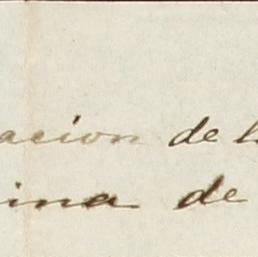 acion de l
ina de